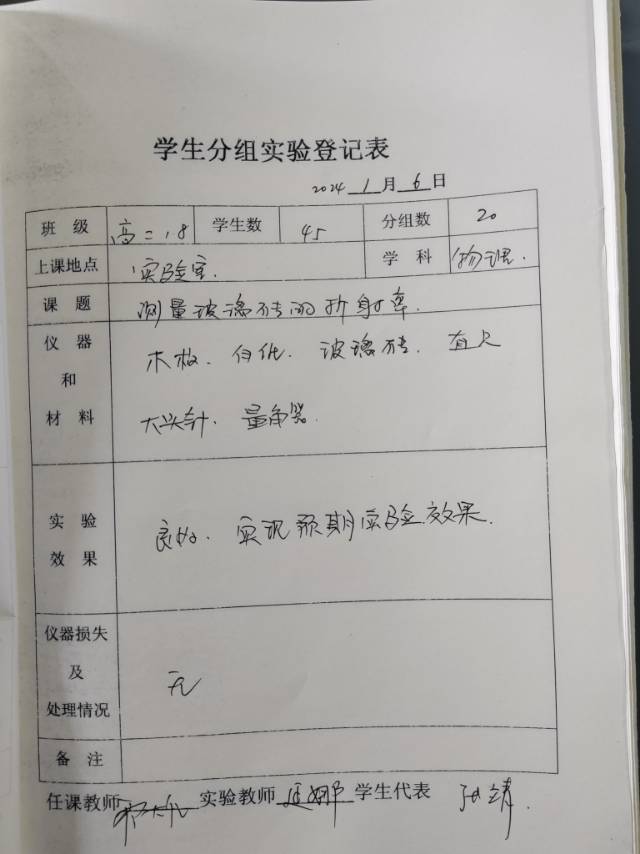 学生分组实验登记表
2024 1 月 6 日
班 级 高二.8 学生数 45 分组数 20
上课地点 实验室. 学 科 物理.
课 题 测量玻璃砖的折射率.
仪 器 和 材 料 木板. 白纸. 玻璃砖. 直尺
大头针. 量角器.
实 验 效 果 良好. 实现预期实验效果.
仪器损失 及 处理情况 无
备 注
任课教师 实验教师 学生代表 张靖.